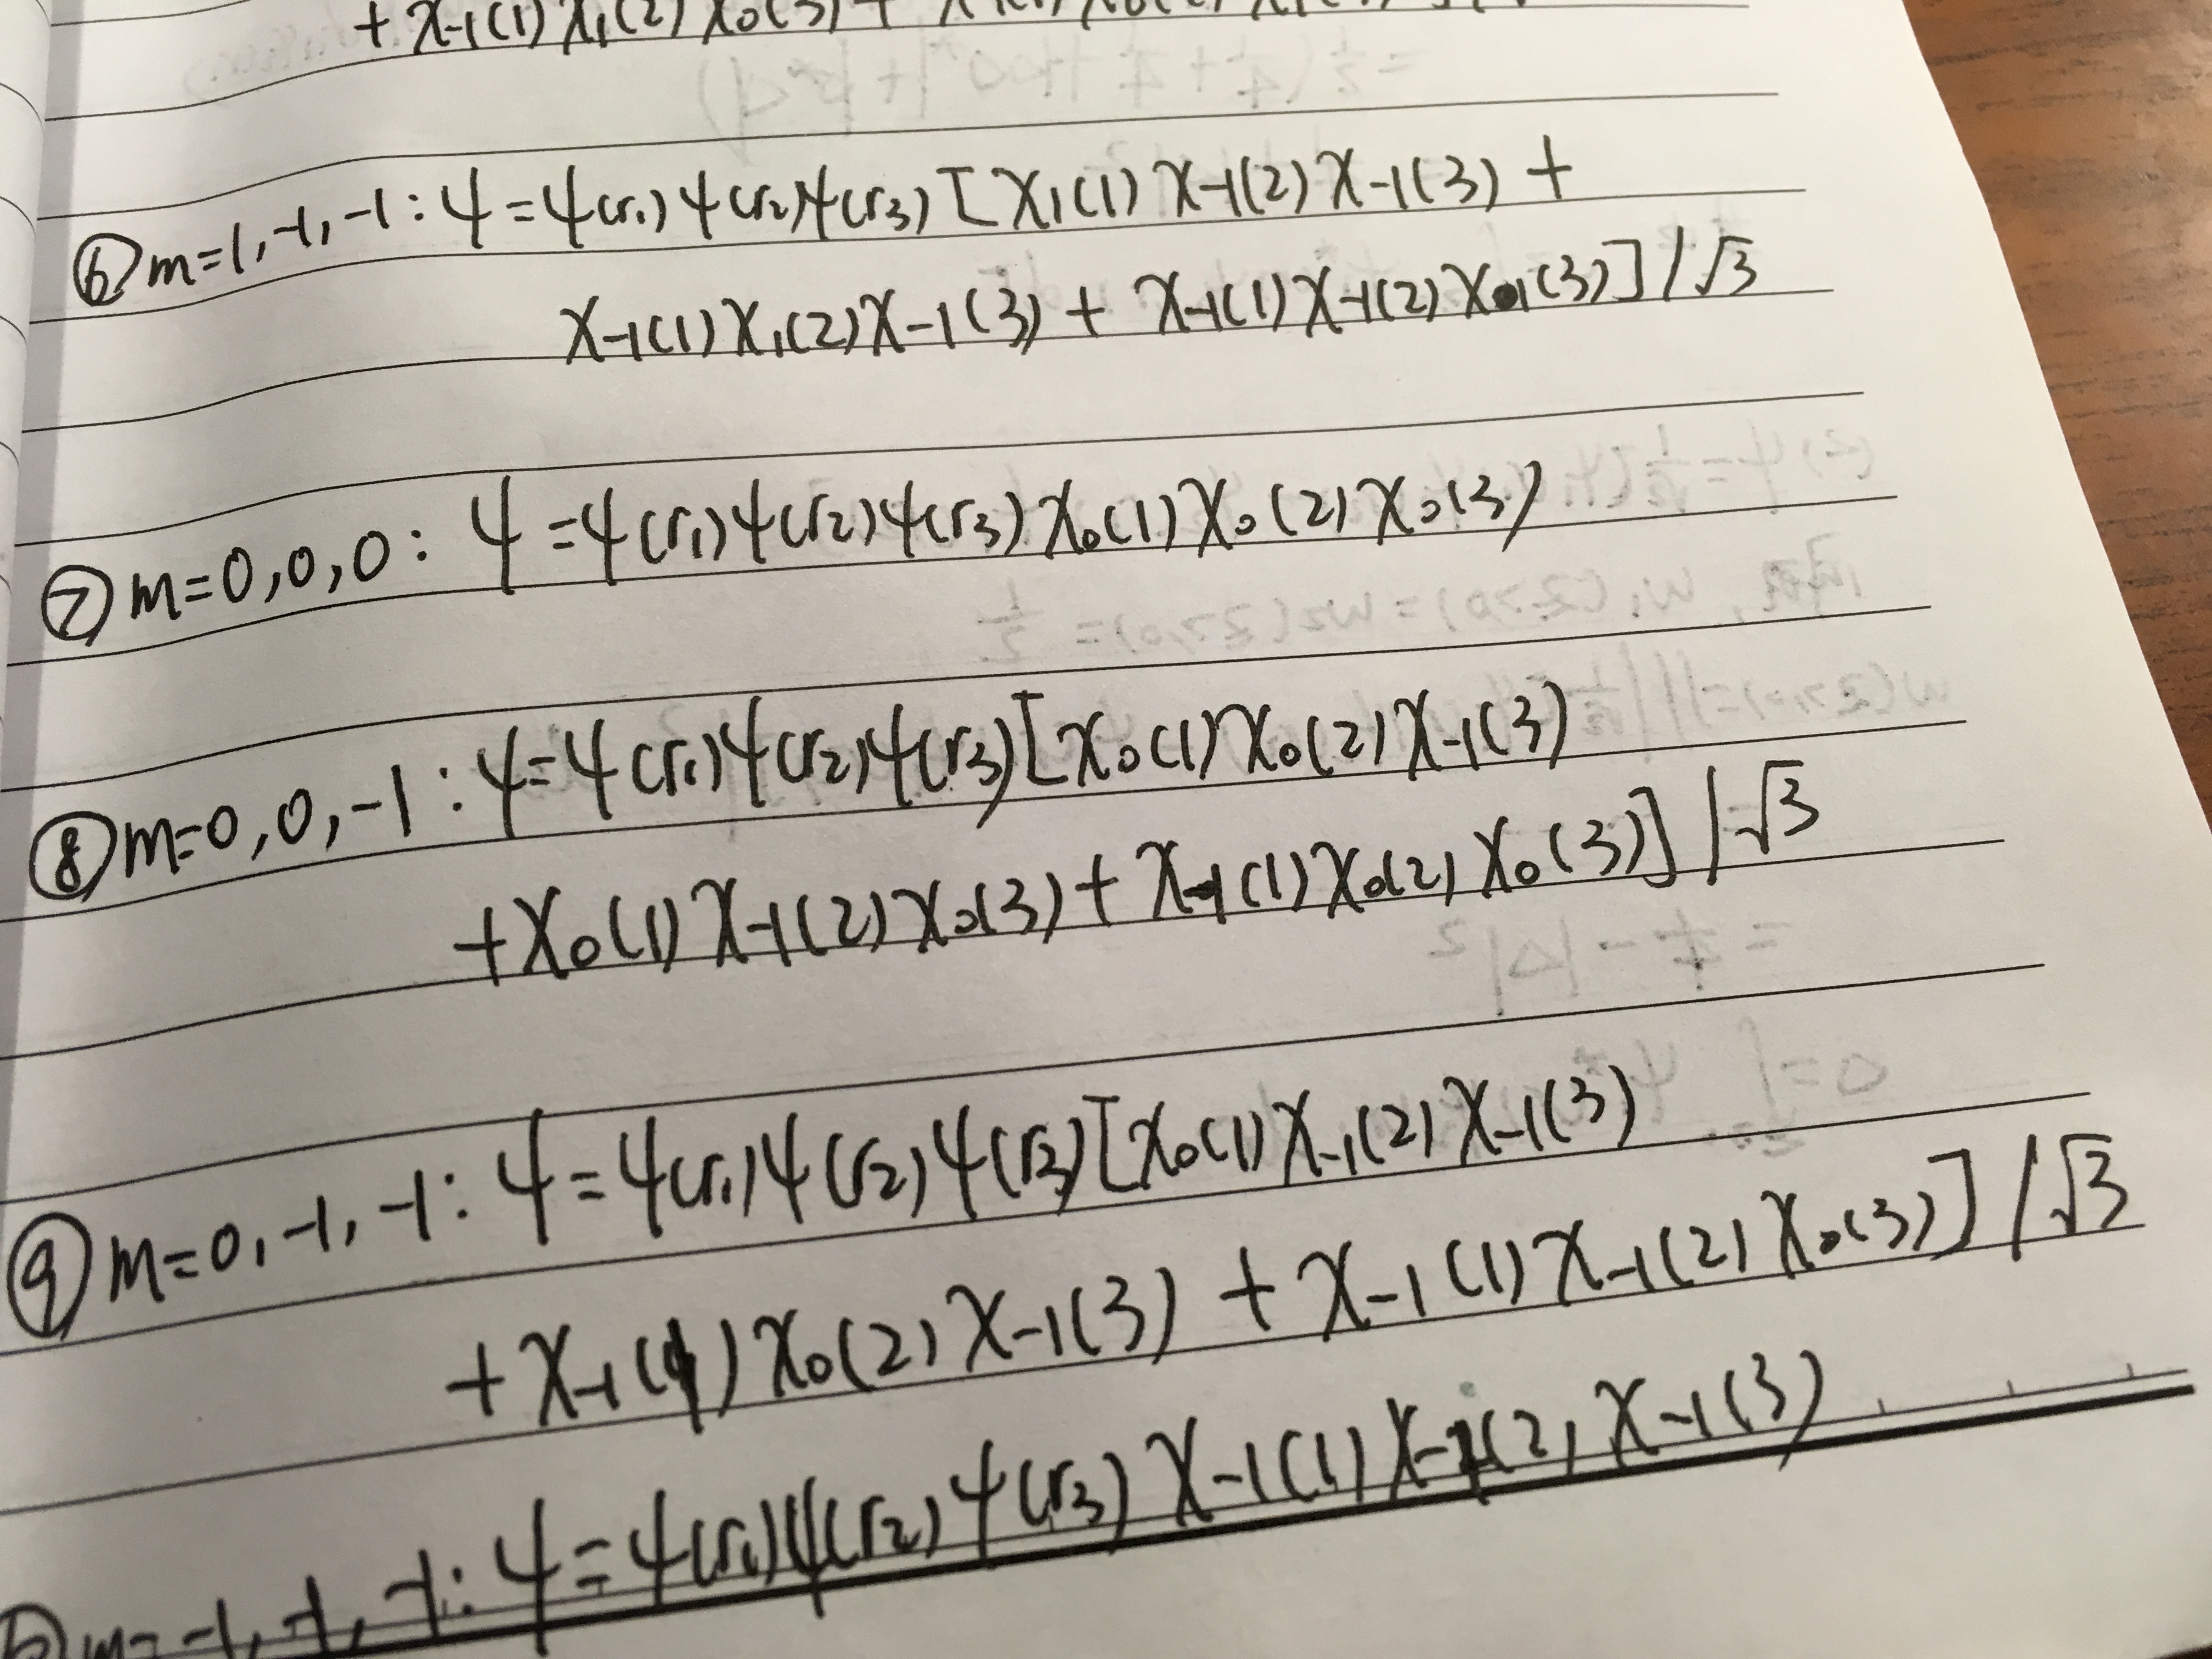 + χ₋₁(1) χ₁(2) χ₀(3) +
⑥ m=1,-1,-1: ψ=ψ(r₁)ψ(r₂)ψ(r₃)[χ₁(1)χ₋₁(2)χ₋₁(3)+
χ₋₁(1)χ₁(2)χ₋₁(3)+χ₋₁(1)χ₋₁(2)χ₁(3)]/√3
⑦ m=0,0,0: ψ=ψ(r₁)ψ(r₂)ψ(r₃)χ₀(1)χ₀(2)χ₀(3)
⑧ m=0,0,-1: ψ=ψ(r₁)ψ(r₂)ψ(r₃)[χ₀(1)χ₀(2)χ₋₁(3)
+χ₀(1)χ₋₁(2)χ₀(3)+χ₋₁(1)χ₀(2)χ₀(3)]/√3
⑨ m=0,-1,-1: ψ=ψ(r₁)ψ(r₂)ψ(r₃)[χ₀(1)χ₋₁(2)χ₋₁(3)
+χ₋₁(1)χ₀(2)χ₋₁(3)+χ₋₁(1)χ₋₁(2)χ₀(3)]/√3
m=-1,-1,-1: ψ=ψ(r₁)ψ(r₂)ψ(r₃)χ₋₁(1)χ₋₁(2)χ₋₁(3)